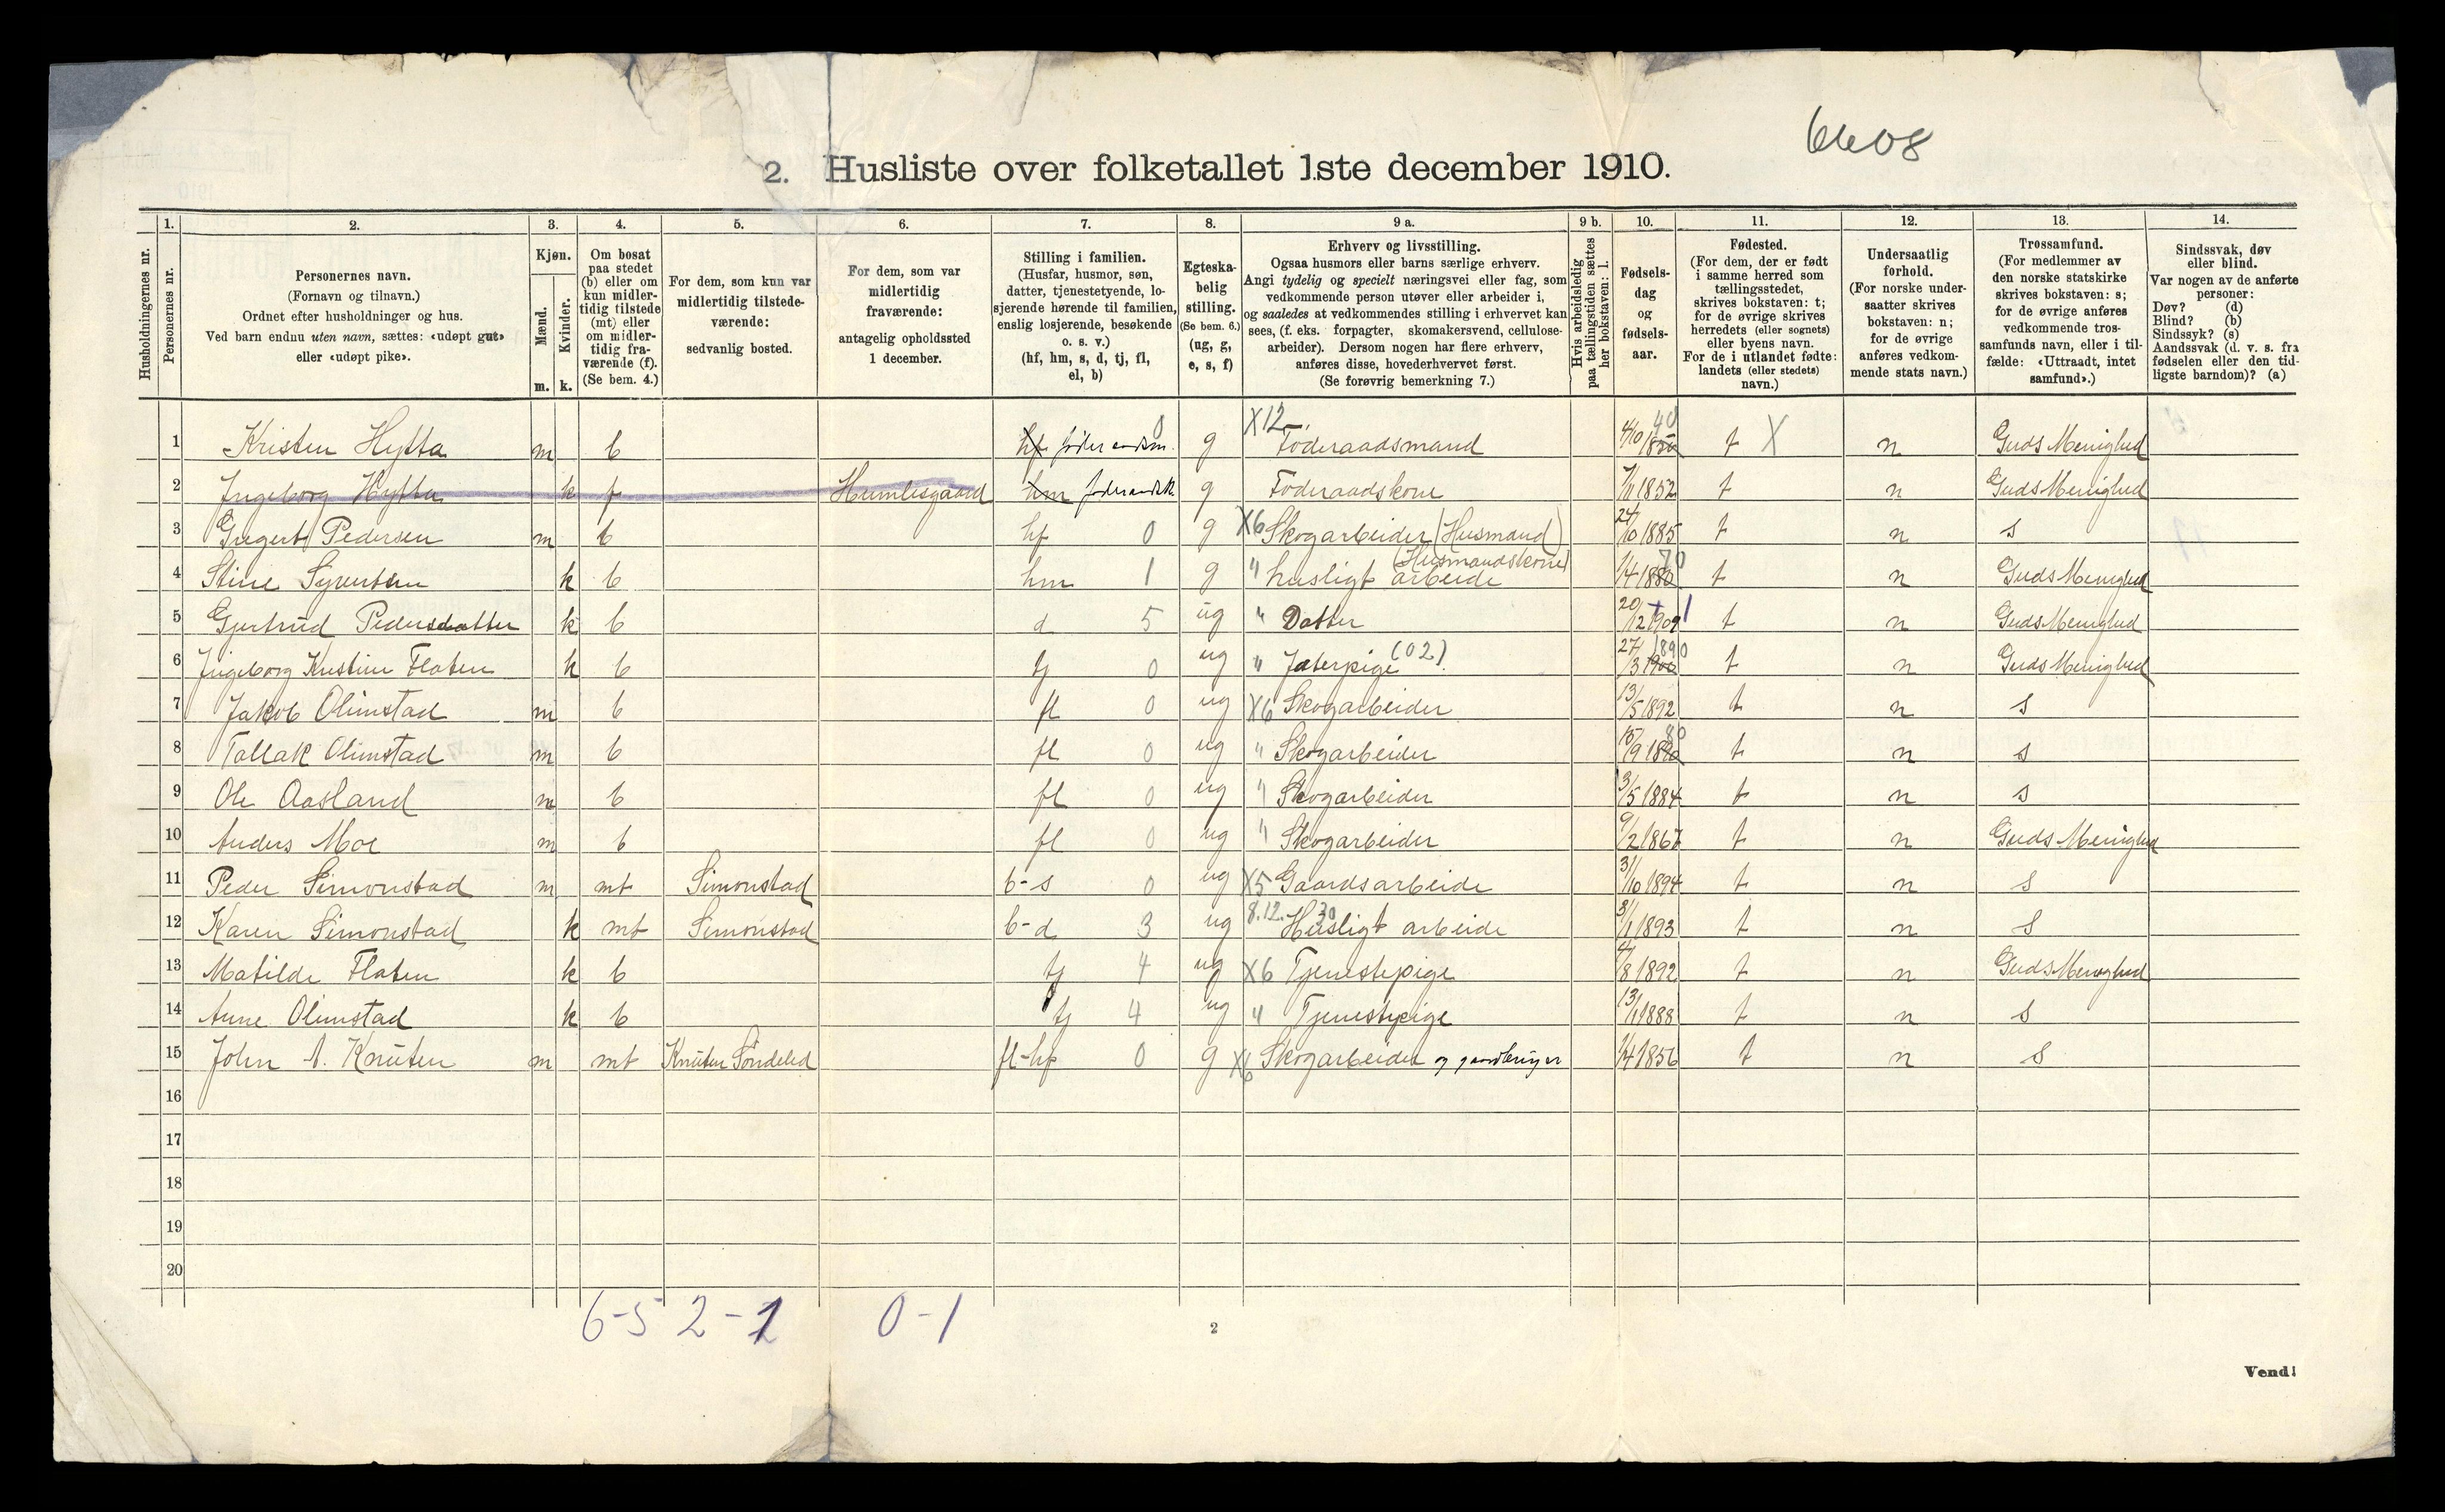 6608
2. Husliste over folketallet 1ste december 1910.
Husholdningernes nr.
1. Personernes nr.
2. Personernes navn.
(Fornavn og tilnavn.)
Ordnet efter husholdninger og hus.
Ved barn endnu uten navn, sættes: «udøpt gut»
eller «udøpt pike».
3. Kjøn.
Mænd. m.
Kvinder. k.
4. Om bosat
paa stedet
(b) eller om
kun midler-
tidig tilstede
(mt) eller
om midler-
tidig fra-
værende (f).
(Se bem. 4.)
5. For dem, som kun var
midlertidig tilstede-
værende:
sedvanlig bosted.
6. For dem, som var
midlertidig
fraværende:
antagelig opholdssted
1 december.
7. Stilling i familien.
(Husfar, husmor, søn,
datter, tjenestetyende, lo-
sjerende hørende til familien,
enslig losjerende, besøkende
o. s. v.)
(hf, hm, s, d, tj, fl,
el, b)
8. Egteska-
belig
stilling.
(Se bem. 6.)
(ug, g,
e, s, f)
9 a. Erhverv og livsstilling.
Ogsaa husmors eller barns særlige erhverv.
Angi tydelig og specielt næringsvei eller fag, som
vedkommende person utøver eller arbeider i,
og saaledes at vedkommendes stilling i erhvervet kan
sees, (f. eks. forpagter, skomakersvend, cellulose-
arbeider). Dersom nogen har flere erhverv,
anføres disse, hovederhvervet først.
(Se forøvrig bemerkning 7.)
9 b. Hvis arbeidsledig
paa tællingstiden sættes
her bokstaven: l.
10. Fødsels-
dag
og
fødsels-
aar.
11. Fødested.
(For dem, der er født
i samme herred som
tællingsstedet,
skrives bokstaven: t;
for de øvrige skrives
herredets (eller sognets)
eller byens navn.
For de i utlandet fødte:
landets (eller stedets)
navn.)
12. Undersaatlig
forhold.
(For norske under-
saatter skrives
bokstaven: n;
for de øvrige
anføres vedkom-
mende stats navn.)
13. Trossamfund.
(For medlemmer av
den norske statskirke
skrives bokstaven: s;
for de øvrige anføres
vedkommende tros-
samfunds navn, eller i til-
fælde: «Uttraadt, intet
samfund».)
14. Sindssvak, døv
eller blind.
Var nogen av de anførte
personer:
Døv? (d)
Blind? (b)
Sindssyk? (s)
Aandssvak (d. v. s. fra
fødselen eller den tid-
ligste barndom)? (a)
1 Kristen Hytta m b hf føderaadsm. 0 g X12 Føderaadsmand 4/10 1850 40 t X n Guds Menighed
2 Ingeborg Hytta k f Humlesgaard hm føderaadsk. g Føderaadskone 7/11 1852 t n Guds Menighed
3 Gregert Pedersen m b hf 0 g X6 Skogarbeider (Husmand) 24/10 1885 t n s
4 Stine k b hm 1 g " husligt arbeide (Husmandskone) 1/4 1880 70 t n Guds Menighed
5 Gjertrud Pedersdatter k b d 5 ug " Datter 20/12 1909 1 t n Guds Menighed
6 Ingeborg Kristine Flaten k b tj 0 ug " Jæterpige (02) 27/3 1900 1890 t n Guds Menighed
7 Jakob Olimstad m b fl 0 ug X6 Skogarbeider 13/5 1892 t n s
8 Tallak Olimstad m b fl 0 ug " Skogarbeider 15/9 1890 80 t n s
9 Ole Aasland m b fl 0 ug " Skogarbeider 3/5 1884 t n s
10 Anders Moe m b fl 0 ug " Skogarbeider 9/2 1867 t n Guds Menighed
11 Peder Simonstad m mt Simonstad b-s 0 ug X5 Gaardsarbeide 31/10 1894 t n s
12 Karen Simonstad k mt Simonstad b-d 3 ug 8.12. 30 Husligt arbeide 3/1 1893 t n s
13 Matilde Flaten k b tj 4 ug X6 Tjenestepige 4/8 1892 t n Guds Menighed
14 Anne Olimstad k b tj 4 ug " Tjenestepige 13/1 1888 t n s
15 John A. Knuten m mt Knuten Søndeled fl-hf 0 g X6 Skogarbeider og gaardbruger 1/4 1856 t n s
16
17
18
19
20
6-5 2-1 0-1
2
Vend!